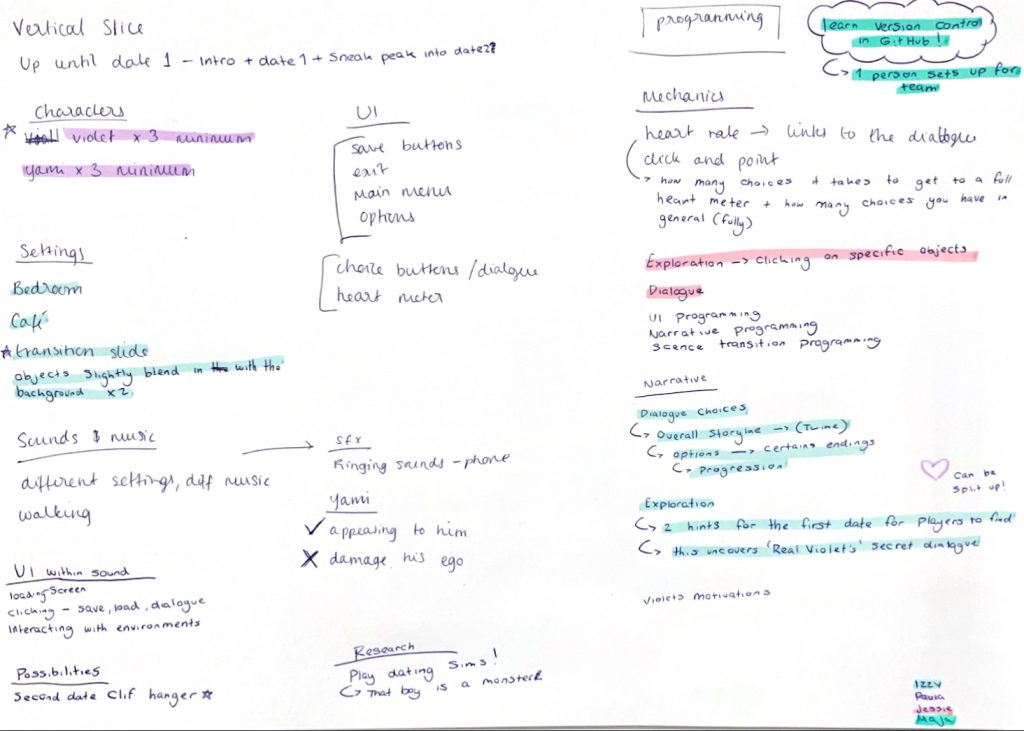 Vertical Slice
Up until date 1 - Intro + date 1 + Sneak peak into date 2?
Characters
violet x 3 minimum
yami x 3 minimum
Settings
Bedroom
Café
transition slide
objects slightly blend in the with the
background x2
Sounds & music
different settings, diff music
walking
UI within sound
loading screen
clicking - save, load, dialogue
Interacting with environments
Possibilities
Second date Clif hanger
UI
save buttons
exit
Main menu
options
choice buttons / dialogue
heart meter
sfx
Ringing sounds - phone
yami
appearing to him
damage his ego
Research
Play dating Sims!
That boy is a monster
programming
learn version control
in GitHub!
1 person sets up for
team
Mechanics
heart rate → links to the dialogue
click and point
how many choices it takes to get to a full
heart meter + how many choices you have in
general (fully)
Exploration → Clicking on specific objects
Dialogue
UI Programming
Narrative programming
Scence transition programming
Narrative
Dialogue Choices
Overall Storyline → (Twine)
options → certains endings
Progression
Can be
split up!
Exploration
2 hints for the first date for players to find
this uncovers 'Real Violet's' secret dialogue
Violets motivations
Izzy
Paula
Jessie
Maja